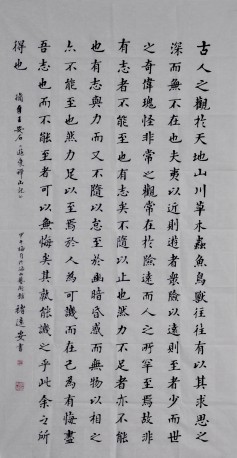 古人之觀於天地山川草木蟲魚鳥獸往往有以其求思之
深而無不在也夫夷以近則遊者衆險以遠則至者少而世
之奇偉瑰怪非常之觀常在於險遠而人之所罕至焉故非
有志者不能至也有志矣不隨以止也然力不足者亦不能
也有志與力而又不隨以怠至於幽暗昏惑而無物以相之
亦不能至也然力足以至焉於人為可譏而在己為有悔盡
吾志也而不能至者可以無悔矣其孰能譏之乎此余之所
得也
摘自王安石遊褒禪山記
甲午 月於 藝術館 安書